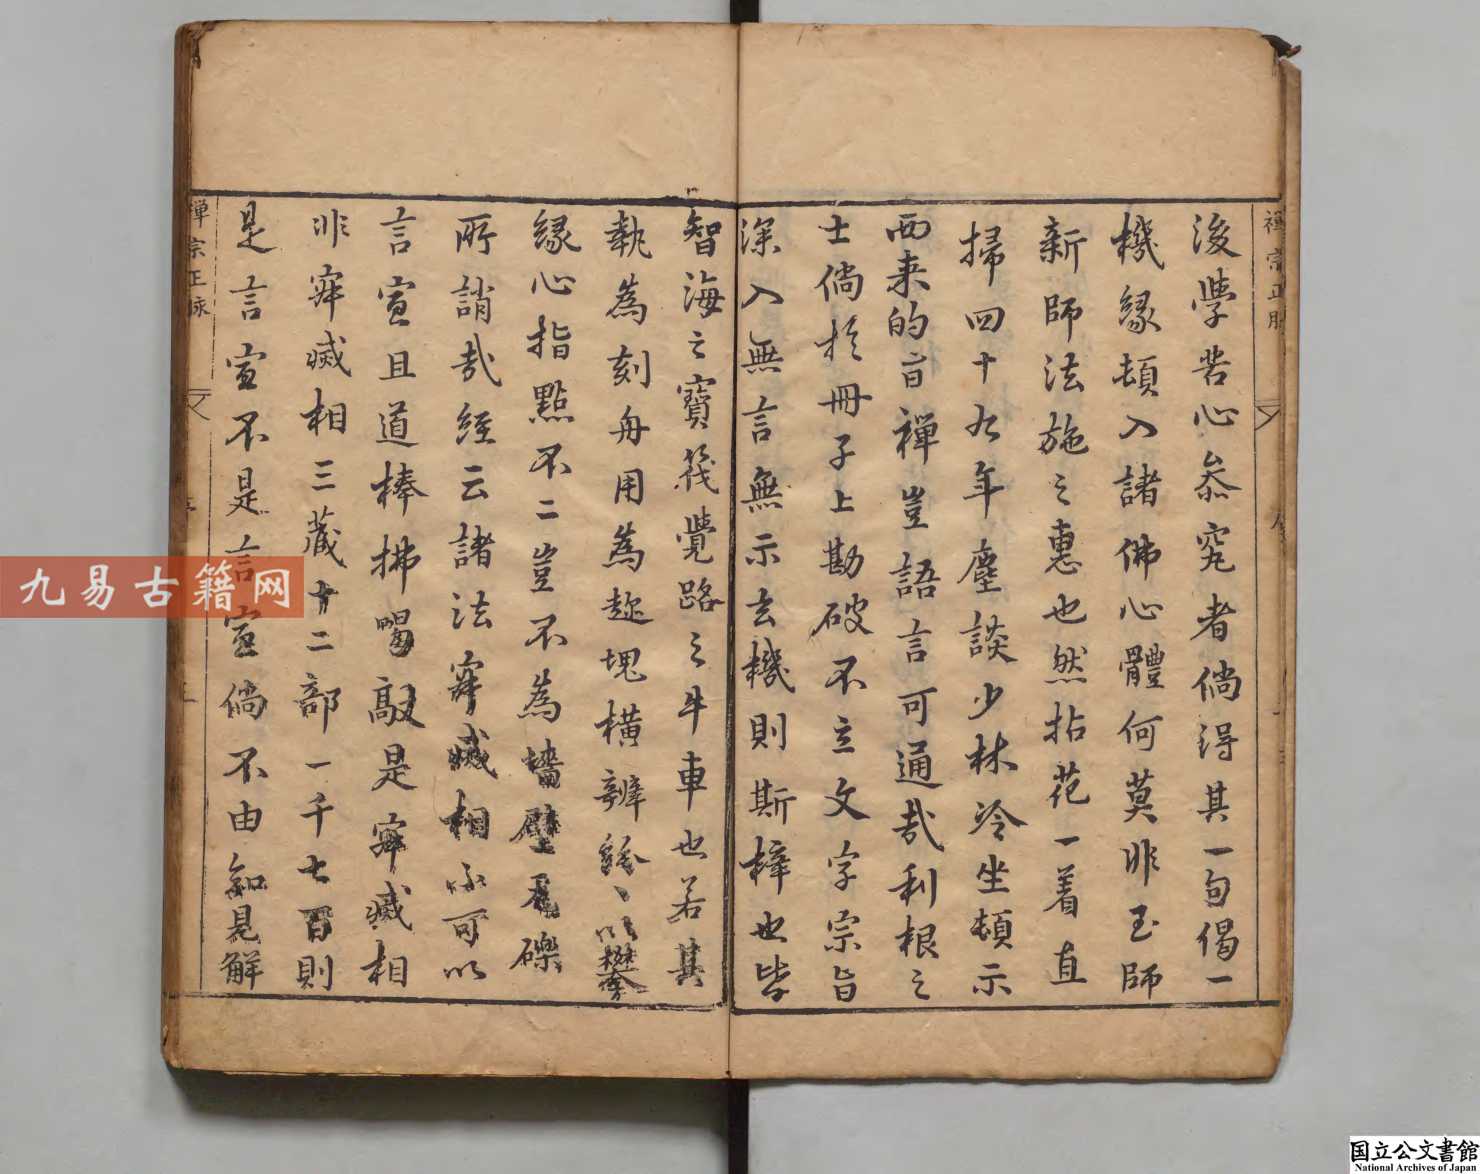 後學苦心叅究者倘得其一句偈一
機緣頓入諸佛心體何莫非玉師
新師法施之惠也然拈花一着直
掃四十九年塵談少林冷坐頓示
西来的旨禪豈語言可通哉利根之
士倘扵冊子上勘破不立文字宗旨
深入無言無示玄機則斯梓也皆
智海之寶筏覺路之牛車也若其
執為刻舟用為趂塊橫辨
緣心指點不二豈不為墻壁瓦礫
所誚哉經云諸法寂滅相不可以
言宣且道棒拂喝敲是寂滅相
非寂滅相三藏十二部一千七百則
是言宣不是言宣倘不由知見解
禪宗正脉
序
禪宗正脉
九易古籍网
国立公文書館
National Archives of Japan